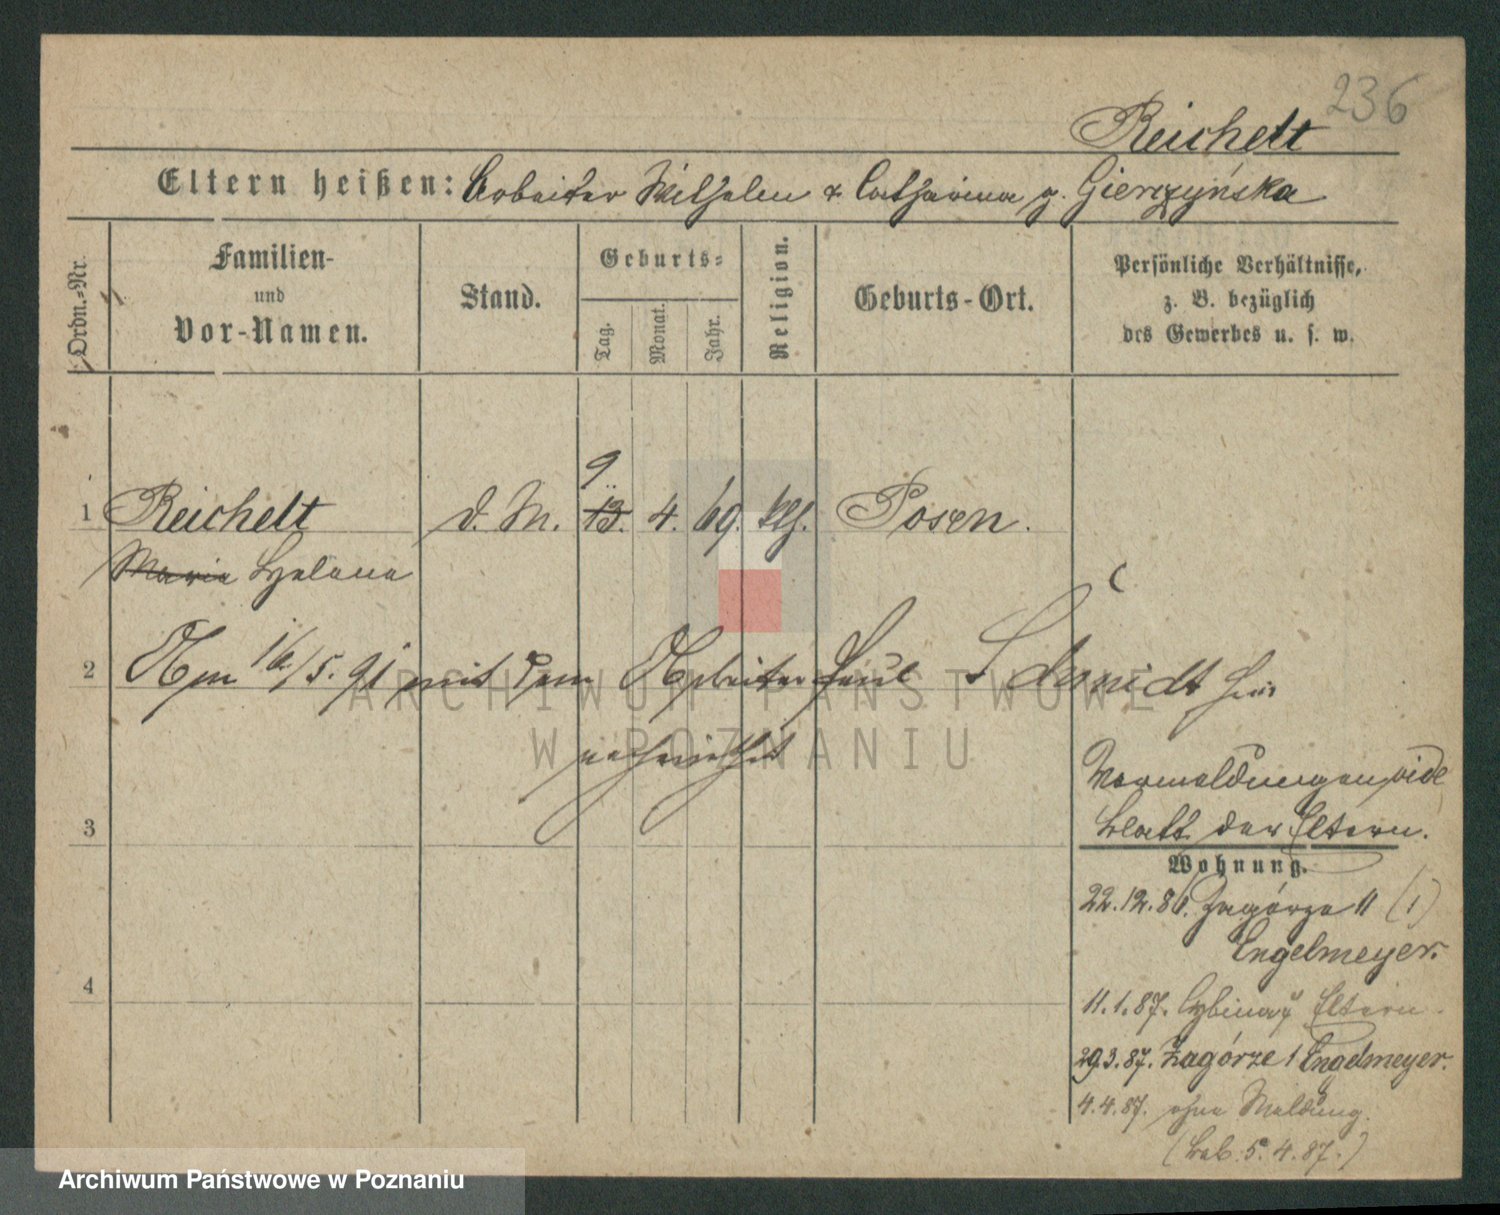 236
Reichelt
Eltern heißen: Arbeiter Wilhelm & Catharina g. Gierczyńska
Ordn.-Nr.
Familien-
und
Vor-Namen.
Stand.
Geburts-
Tag.
Monat.
Jahr.
Religion.
Geburts-Ort.
Persönliche Verhältnisse,
z. B. bezüglich
des Gewerbes u. s. w.
9
1 Reichelt d. M. 13. 4. 69. klg. Posen.
Maria Helena
2 Am 16/5. 91 mit dem Arbeiter Paul Schmidt hier
verheirathet
Vermeldungen vide
3 Blatt der Eltern.
Wohnung.
22.12.86. Zagórze 11 (1)
Engelmeyer.
4 11.1.87. Eltern.
29.3.87. Zagórze 1 Engelmeyer.
4.4.87. ohne Meldung.
(Leb. 5. 4. 87.)
ARCHIWUM PAŃSTWOWE
W POZNANIU
Archiwum Państwowe w Poznaniu